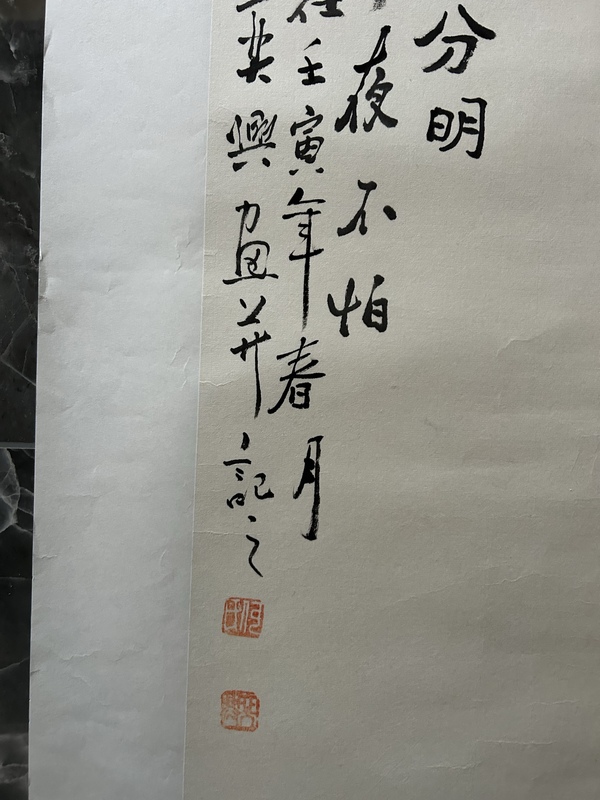 分明
夜不怕
在壬寅年春月
興画并記之